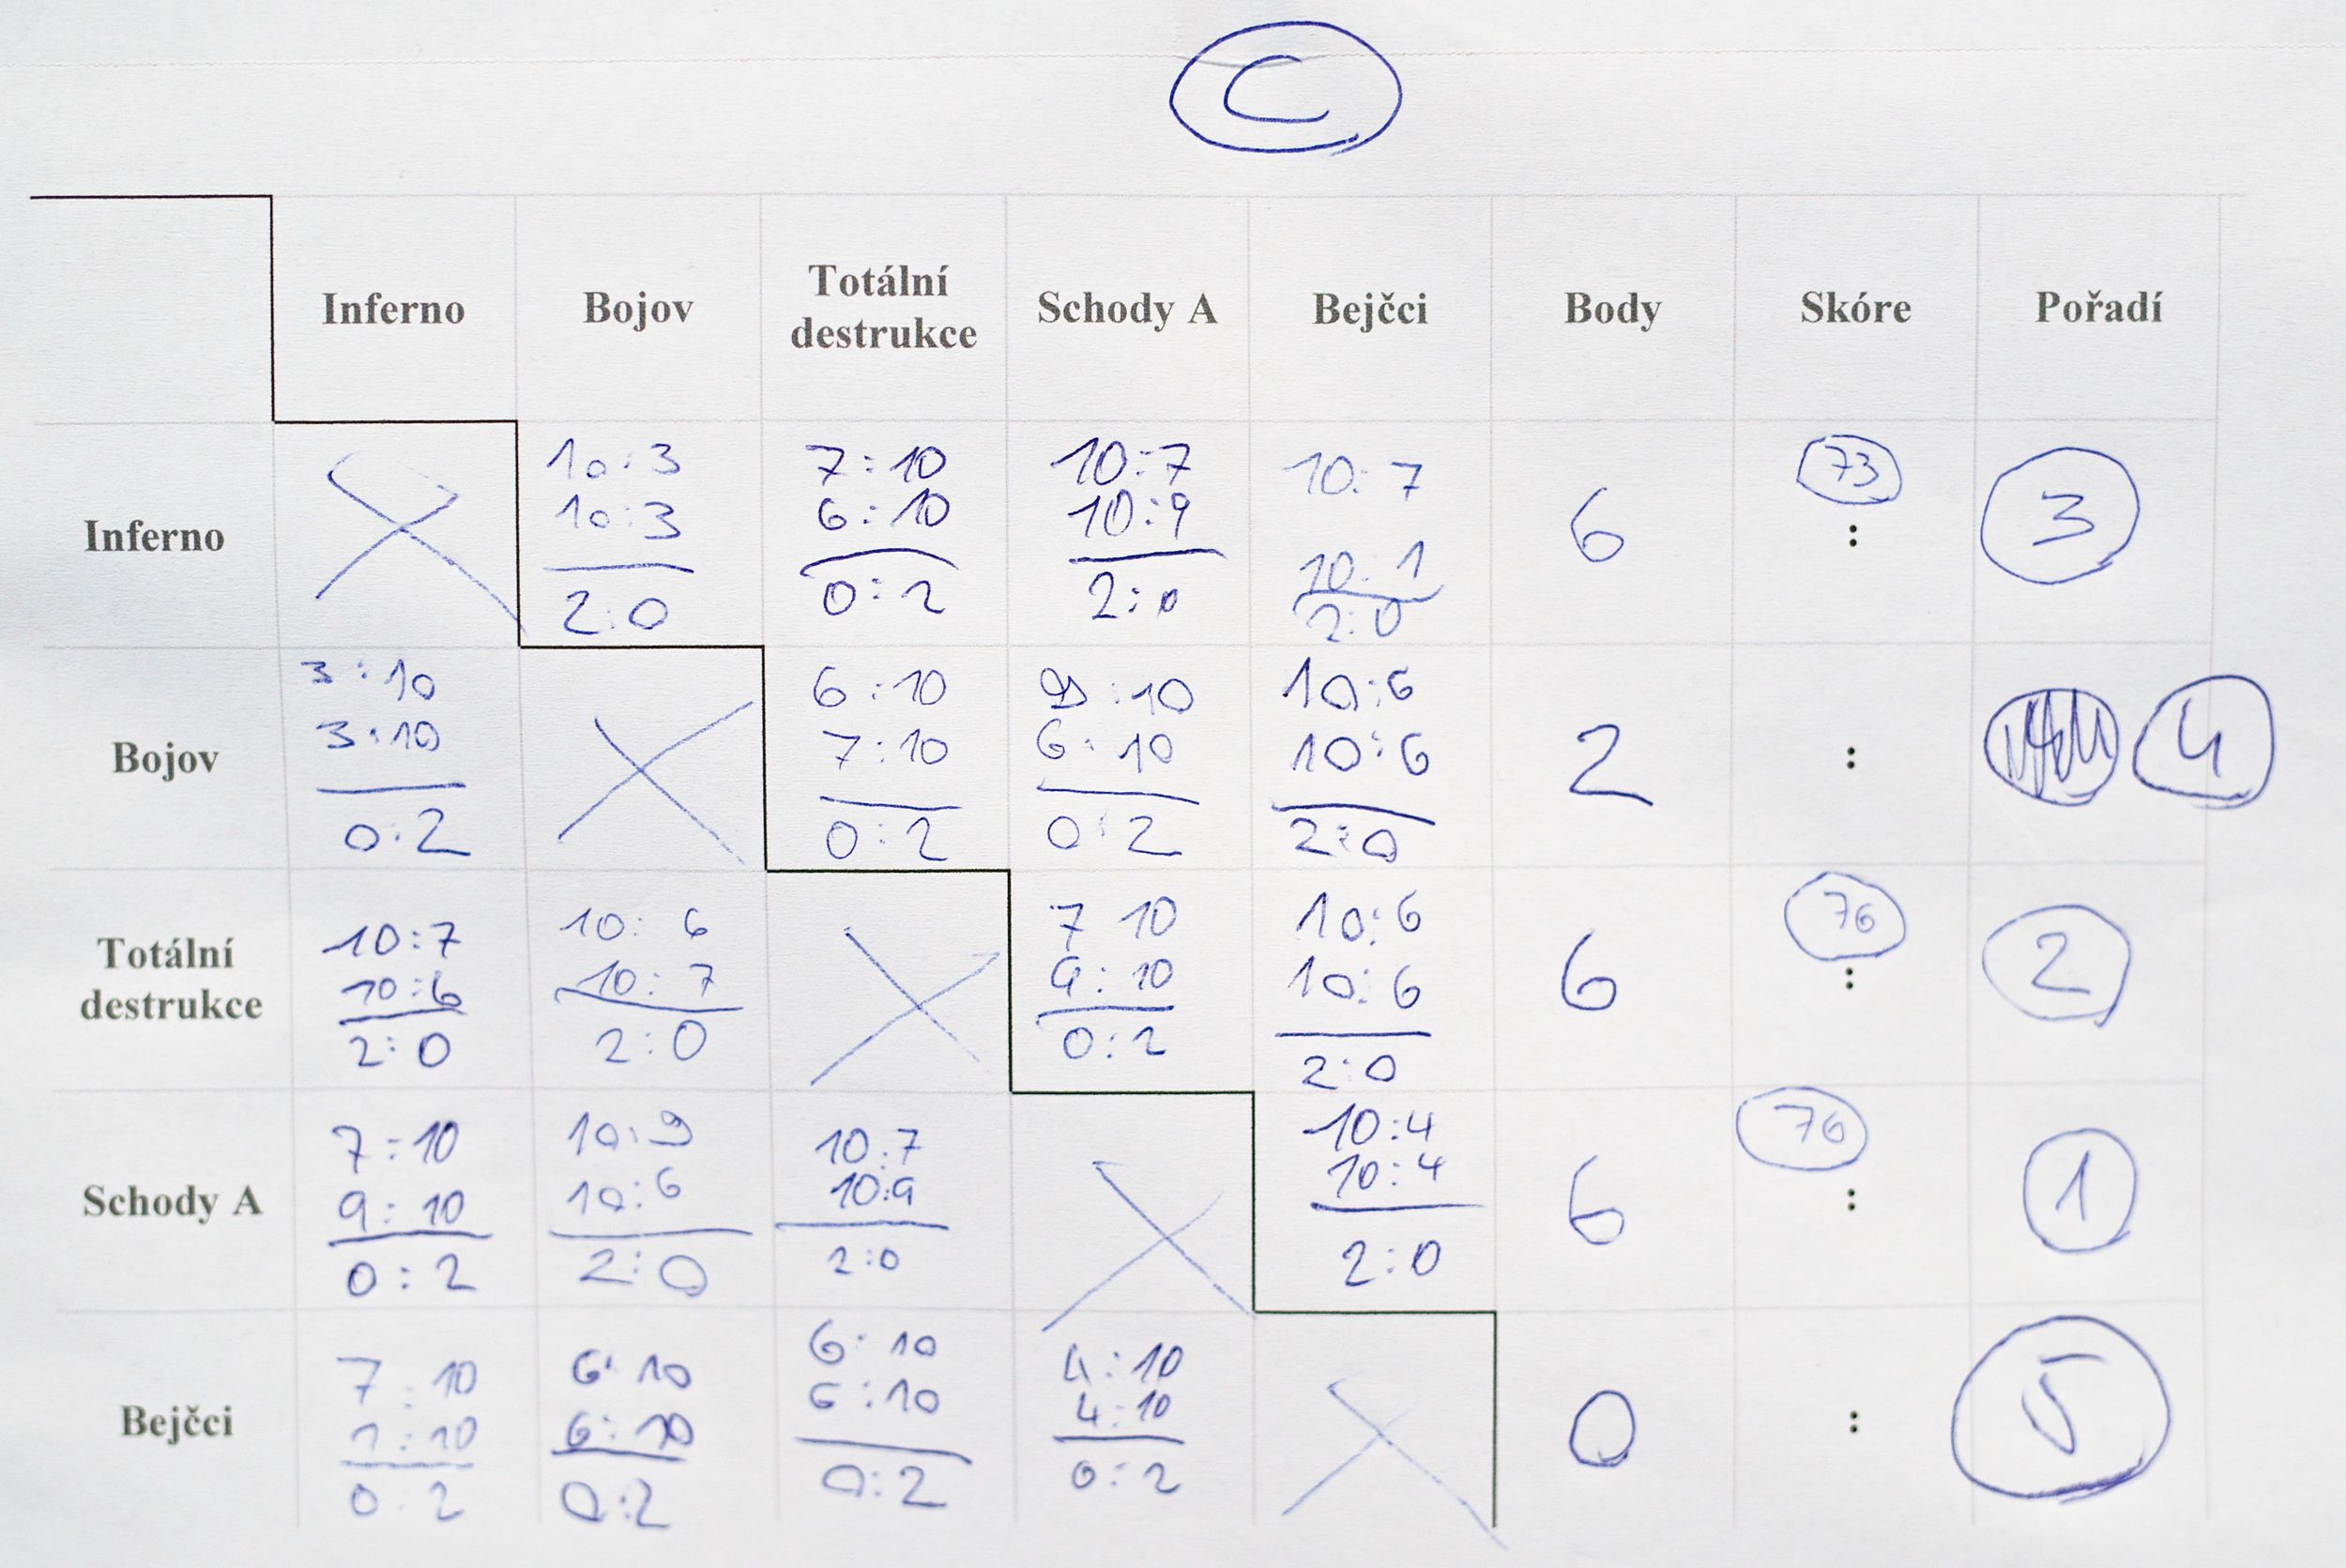 C
Inferno Bojov Totální destrukce Schody A Bejčci Body Skóre Pořadí
Inferno
10:3
10:3
2:0
7:10
6:10
0:2
10:7
10:9
2:0
10:7
10:1
2:0
6
73
:
3
Bojov
3:10
3:10
0:2
6:10
7:10
0:2
9:10
6:10
0:2
10:6
10:6
2:0
2
:
4
Totální destrukce
10:7
10:6
2:0
10:6
10:7
2:0
7 10
9:10
0:2
10:6
10:6
2:0
6
76
:
2
Schody A
7:10
9:10
0:2
10:9
10:6
2:0
10:7
10:9
2:0
10:4
10:4
2:0
6
76
:
1
Bejčci
7:10
1:10
0:2
6:10
6:10
0:2
6:10
6:10
0:2
4:10
4:10
0:2
0
:
5